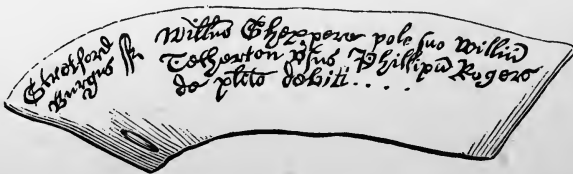 Stretford
Burgus
Willus Shexpere pole suo Williū
Tetherton vsus Phillipū Rogers
de plito debiti.....